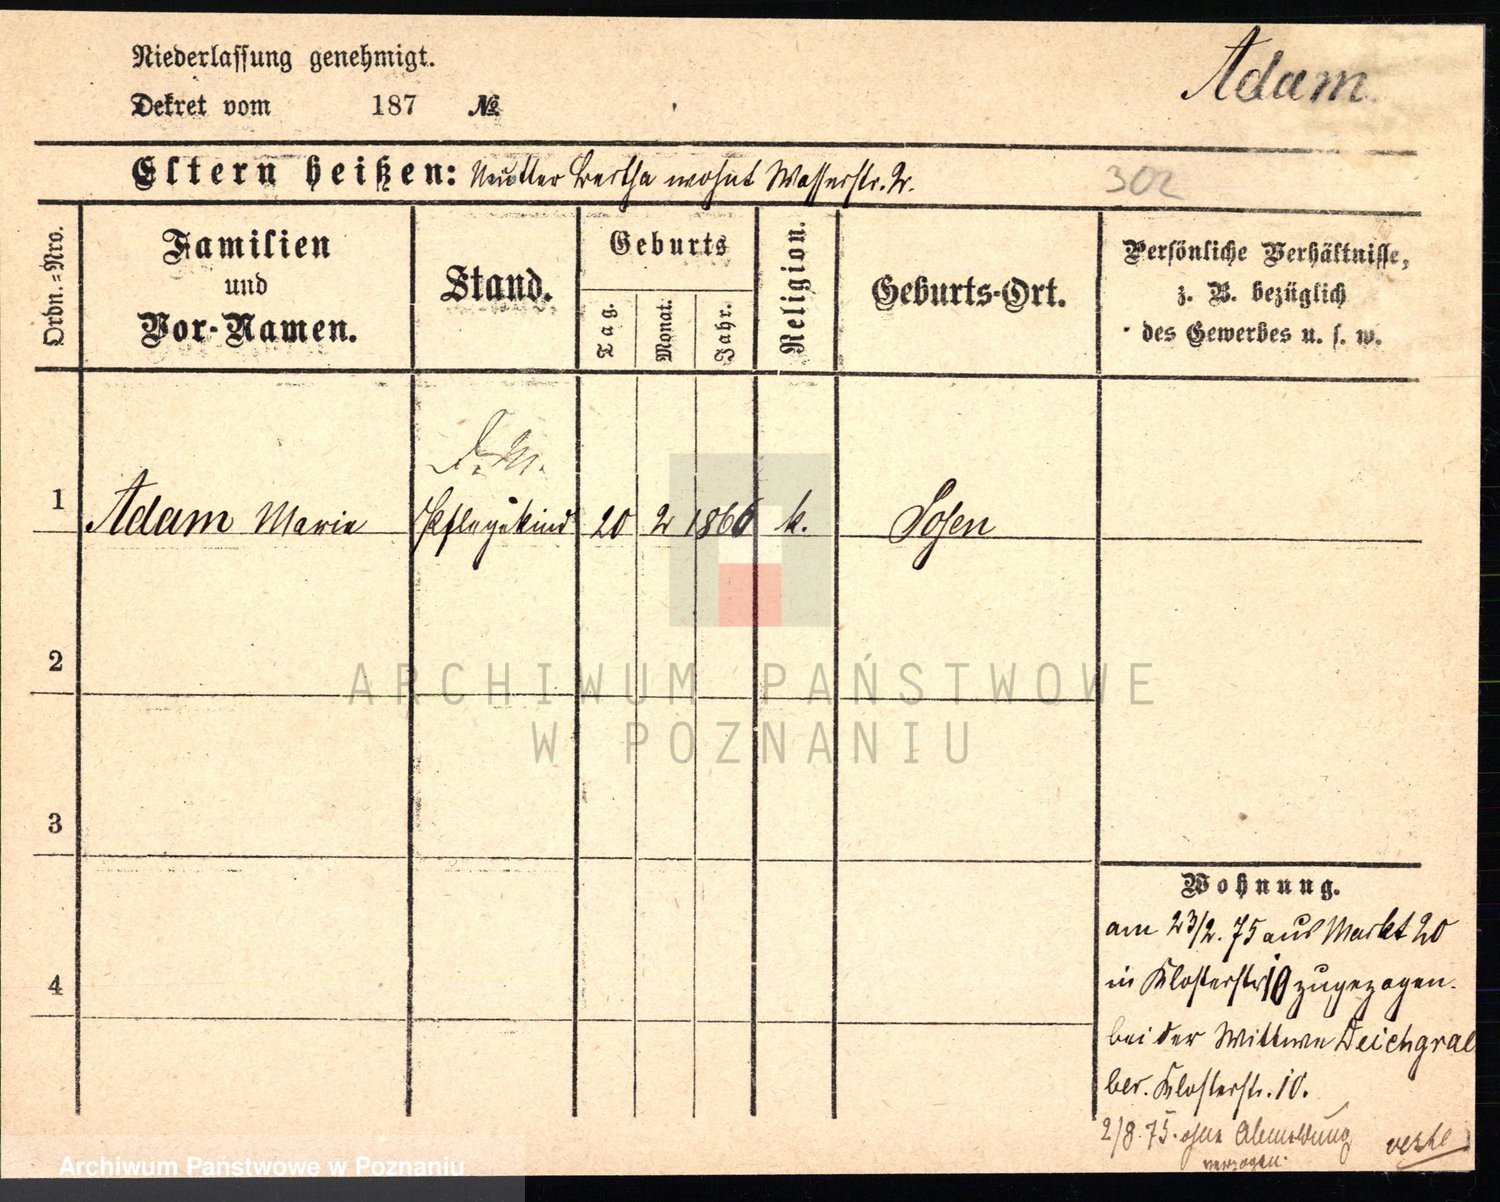 Niederlassung genehmigt.
Dekret vom 187 №
Adam
Eltern heißen: Mutter Bertha wohnt Wasserstr. 2.
302
Ordn.=Nro.
Familien
und
Vor-Namen.
Stand.
Geburts
Tag.
Monat.
Jahr.
Religion.
Geburts-Ort.
Persönliche Verhältnisse,
z. B. bezüglich
des Gewerbes u. s. w.
1 Adam Marie Pflegekind 20 2 1860 k. Posen
2
3
4
ARCHIWUM PAŃSTWOWE
W POZNANIU
Wohnung.
am 23/2. 75 aus Markt 20
in Klosterstr 10 zugezogen.
bei der Wittwe Deichgrä
ber. Klosterstr. 10.
2/8. 75. ohne Abmeldung
verzogen.
Archiwum Państwowe w Poznaniu